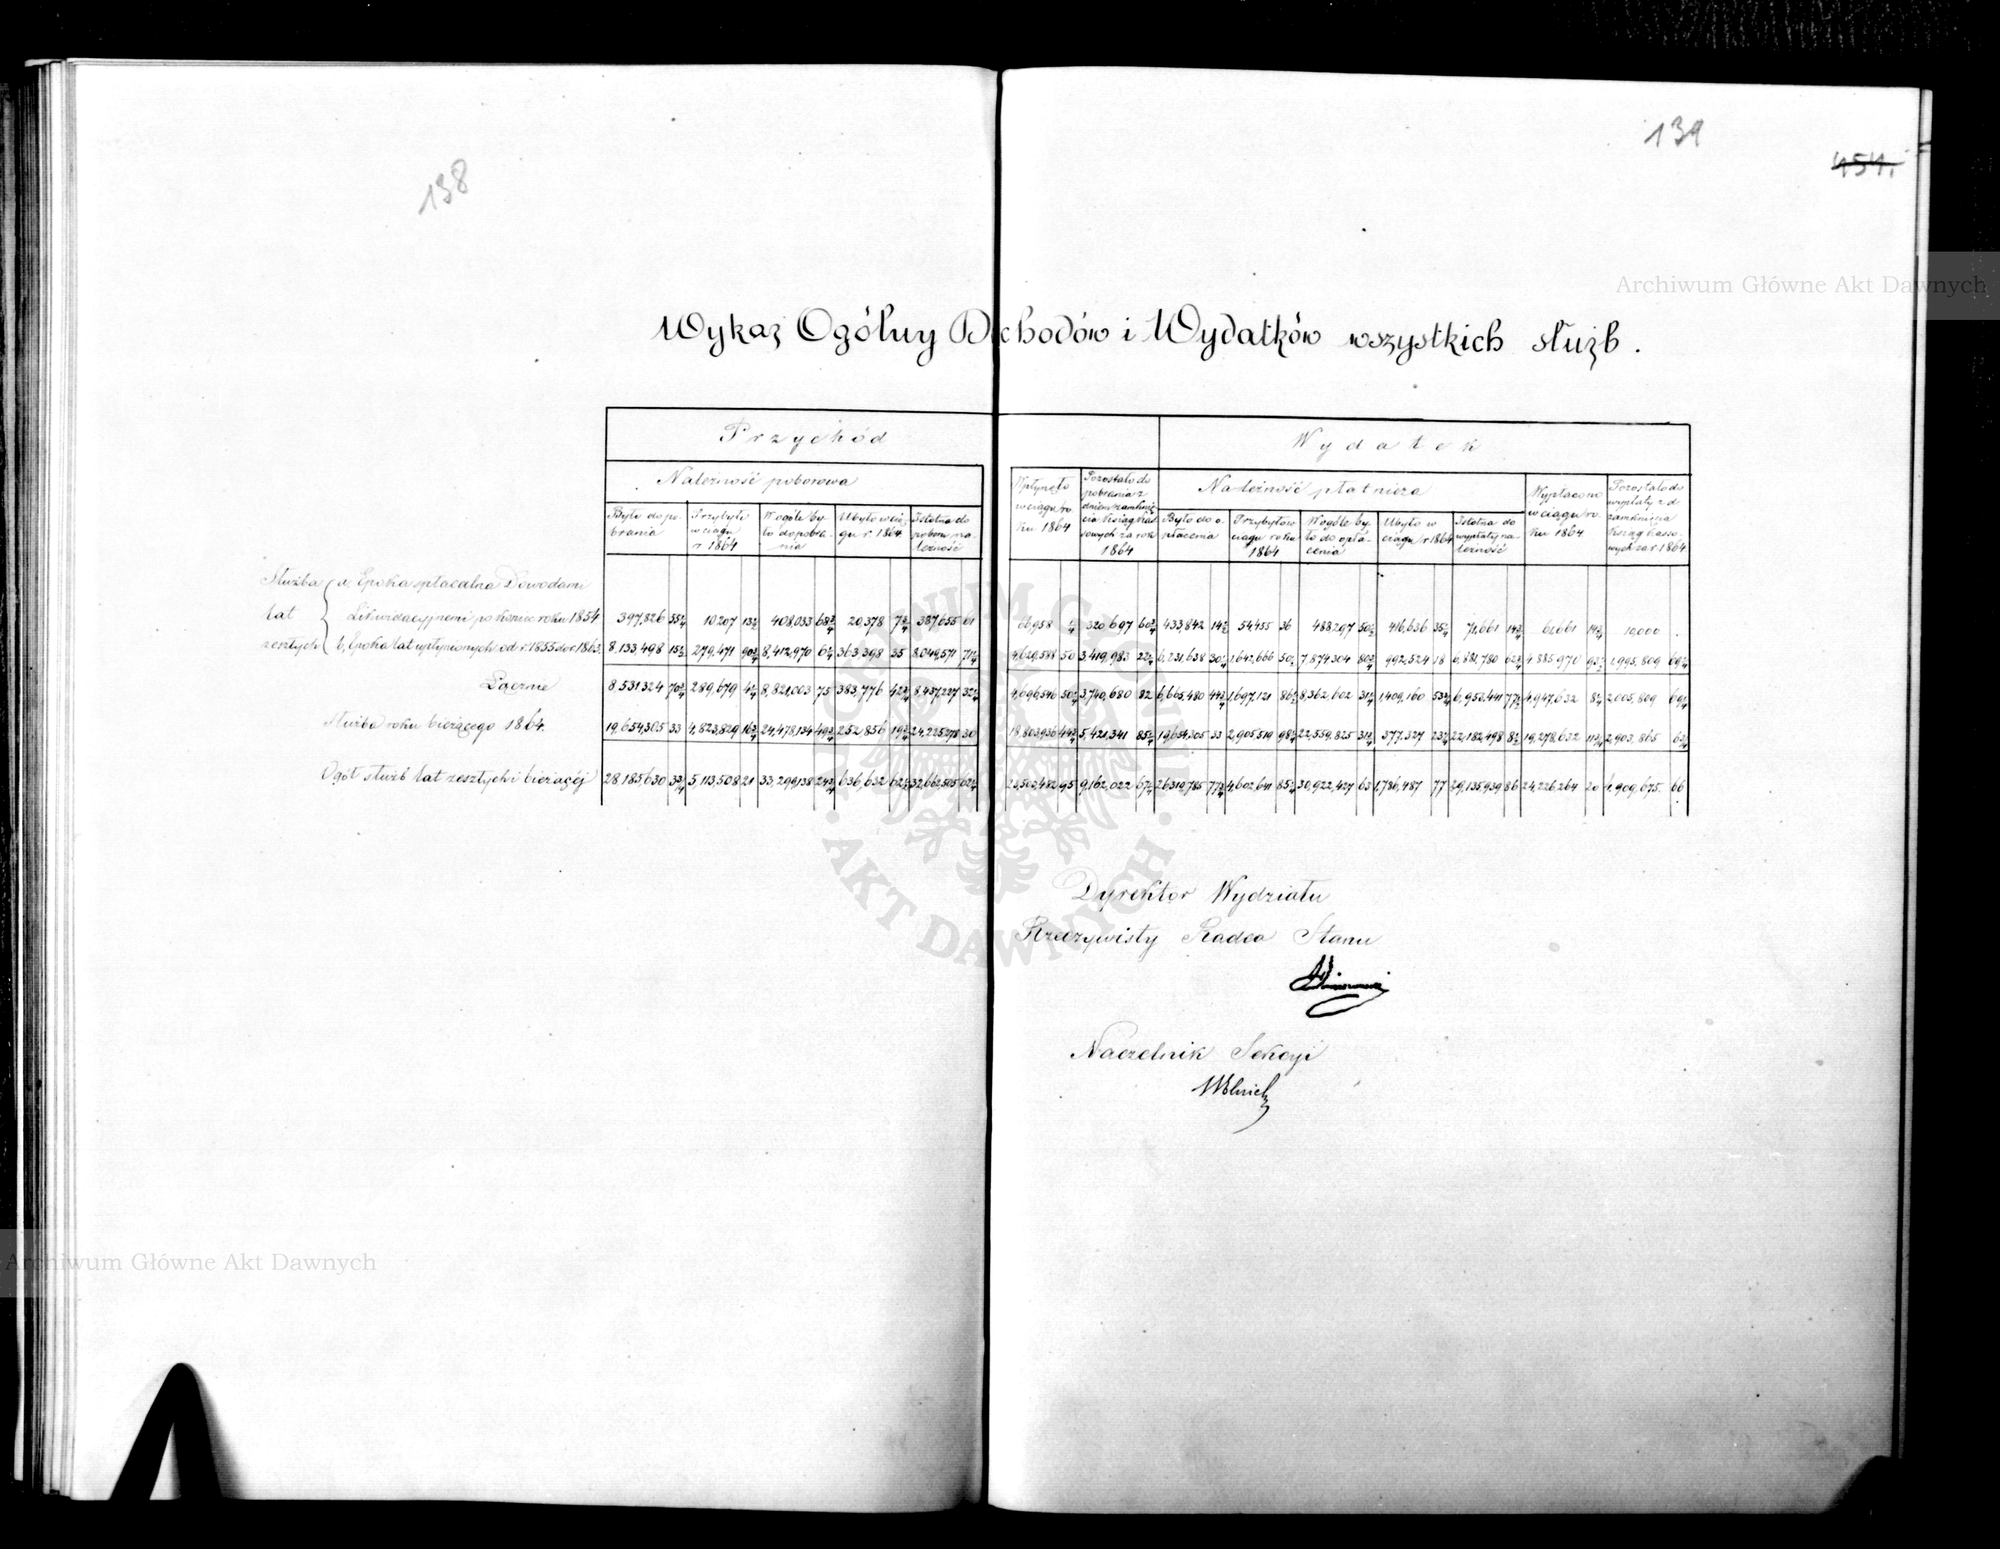 138
139
151.
Wykaz Ogólny Dochodów i Wydatków wszystkich służb.
Przychód
Wydatek
Należność poborowa
Wpłynęło w ciągu roku 1864
Pozostało do pobrania z dniem zamknięcia Ksiąg Kassowych za rok 1864
Należność płatnicza
Wypłacono w ciągu roku 1864
Pozostało do wypłaty z d. zamknięcia Ksiąg Kassowych za r. 1864
Było do pobrania
Przybyło w ciągu r. 1864
W ogóle było do pobrania
Ubyło w ciągu r. 1864
Istotna do poboru należność
Było do opłacenia
Przybyło w ciągu roku 1864
W ogóle było do opłacenia
Ubyło w ciągu r. 1864
Istotna do wypłaty należność
Służba lat zeszłych
a, Epoka spłacalna Dowodami
Likwidacyjnemi po koniec roku 1854 397,826 10207 408,033 20,378 387,655 61 66,958 320,697 433,842 54,455 36 488,297 416,636 71,661 61,661 10,000
b, Epoka lat upłynionych od r. 1855 do r. 1863. 8,133,498 279,471 8,412,970 363,398 35 8,049,571 4,629,588 50 3,419,983 6,231,638 1,642,666 7,874,304 992,524 18 6,881,780 4,885,970 1,995,809
Łącznie 8,531,324 289,679 8,821,003 75 383,776 8,437,227 4,696,546 3,740,680 82 6,665,480 1,697,121 8,362,602 1,409,160 6,953,441 4,947,632 2,005,809
Służba roku bieżącego 1864. 19,654,305 33 4,823,829 24,478,134 252,856 24,225,278 30 18,803,936 5,421,341 19,654,305 33 2,905,519 22,559,825 377,327 22,182,498 19,278,632 2,903,865
Ogół służb lat zeszłych i bieżącej 28,185,630 5,113,508 21 33,299,138 636,632 32,662,505 23,500,482 95 9,162,022 26,319,785 4,602,641 30,922,427 63 1,786,487 77 29,135,939 86 24,226,264 20 4,909,675 66
Dyrektor Wydziału
Rzeczywisty Radca Stanu
Naczelnik Sekcyi
Archiwum Główne Akt Dawnych
Archiwum Główne Akt Dawnych
ARCHIWUM GŁÓWNE AKT DAWNYCH